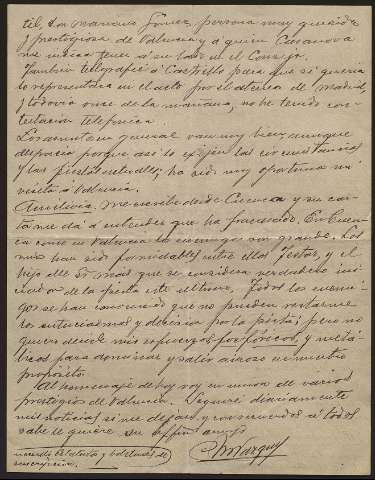 tel, Don Mariano Gómez, persona muy querida
y prestigiosa de Valencia y a quien Casanova
me indica tener a su lado en el Consejo.
También telegrafié a Castrillo para que si quería
lo representara en el acto por el alcalde de Madrid,
y todavía once de la mañana, no he tenido con-
testación telefónica.
Los asuntos en general van muy bien, aunque
despacio porque así lo exijen las circunstancias
y las fiestas actuales; ha sido muy oportuna mi
visita a Valencia.
me escribe desde Cuenca y su car-
ta me da a entender que ha fracasado. En Cuen-
ca como en Valencia la enemiga es grande. Los
más han sido formidables entre ellos Testor, y el
hijo del que se considera verdadero ini-
ciador de la fiesta este último. Todos los enemi-
gos se han convencido que no pueden restarme
entusiasmos y decisión por la pero no
quiere decir mis esfuerzos físicos, y metá-
licos para dominar y salir airoso en nuestro
propósito.
Al homenaje de hoy voy en unión de varios
prestigios de Valencia. Seguiré diariamente
mis noticias si me dejan, y con recuerdos a todos
sabe le quiere su affmo amigo
Vazquez
y boletines de
suscripción.